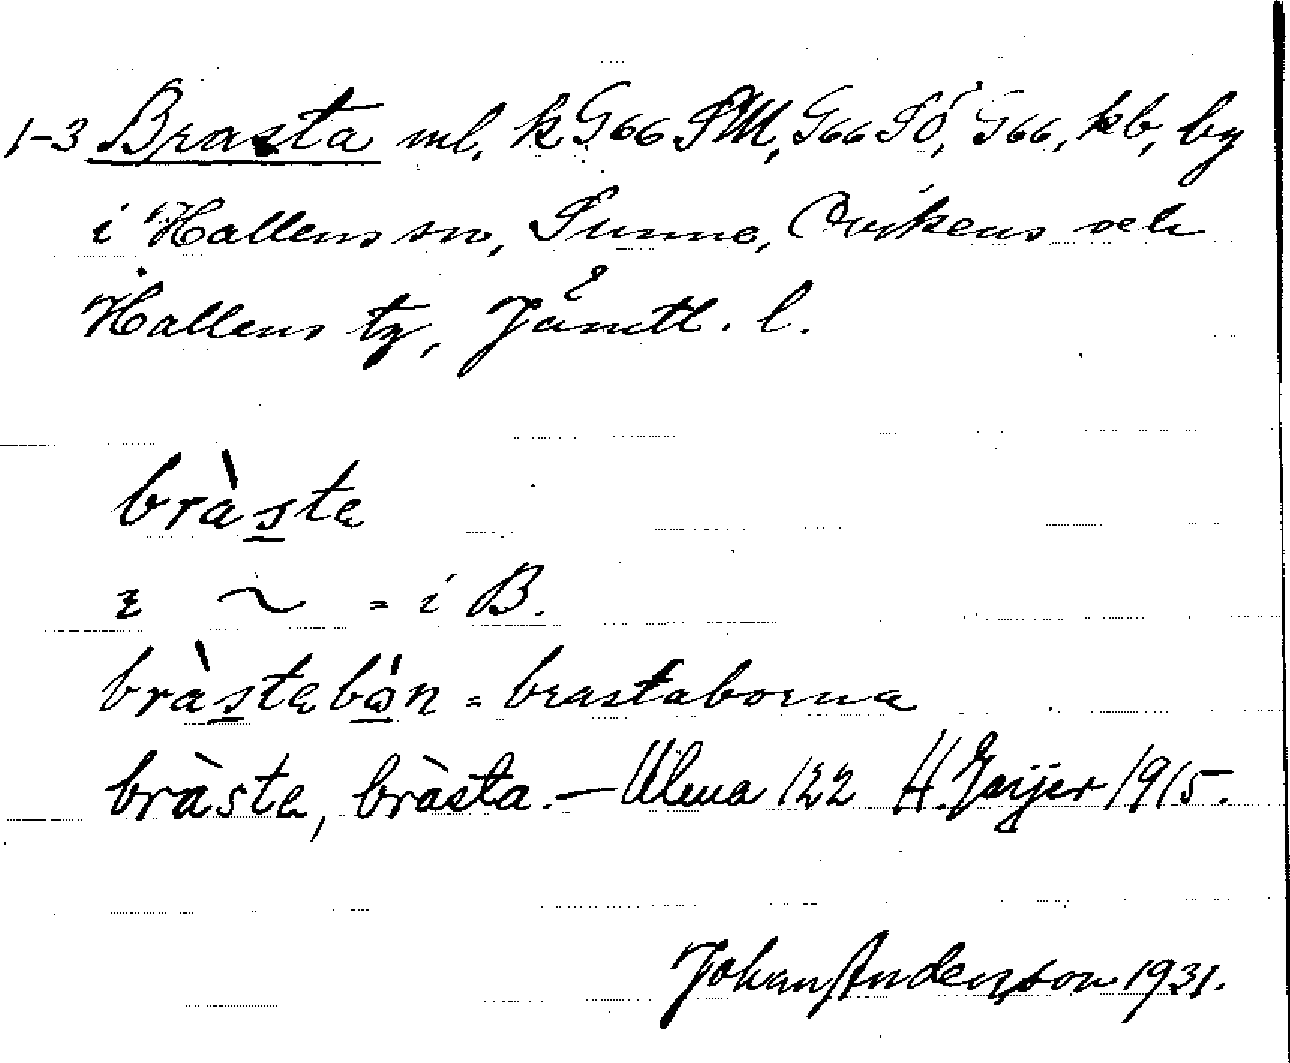 1-3 Brasta ml, k G66 SM, G66 SÖ, G66, kb, by
i Hallens sn, Sunne, Ovikens och
Hallens tg, Jämtl. l.
bràsta
i ~ = i B.
bràstabòn = brastaborna
bràsta, bràsta. — Ulma 122 H. Geijer 1915.
Johan Anderson 1931.